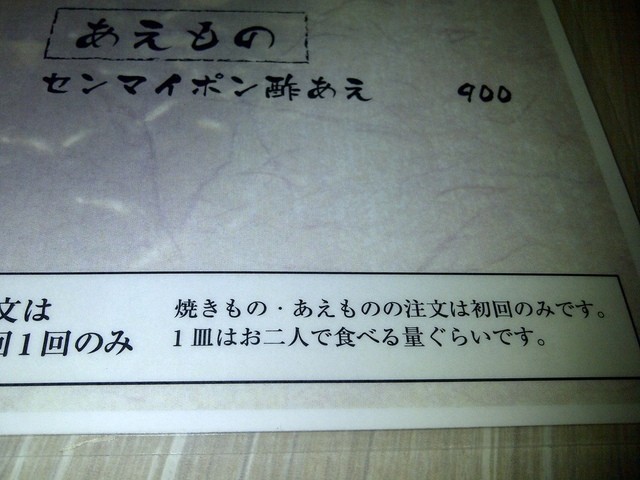 あえもの
センマイポン酢あえ 900
文は
回1回のみ
焼きもの・あえものの注文は初回のみです。
1皿はお二人で食べる量ぐらいです。